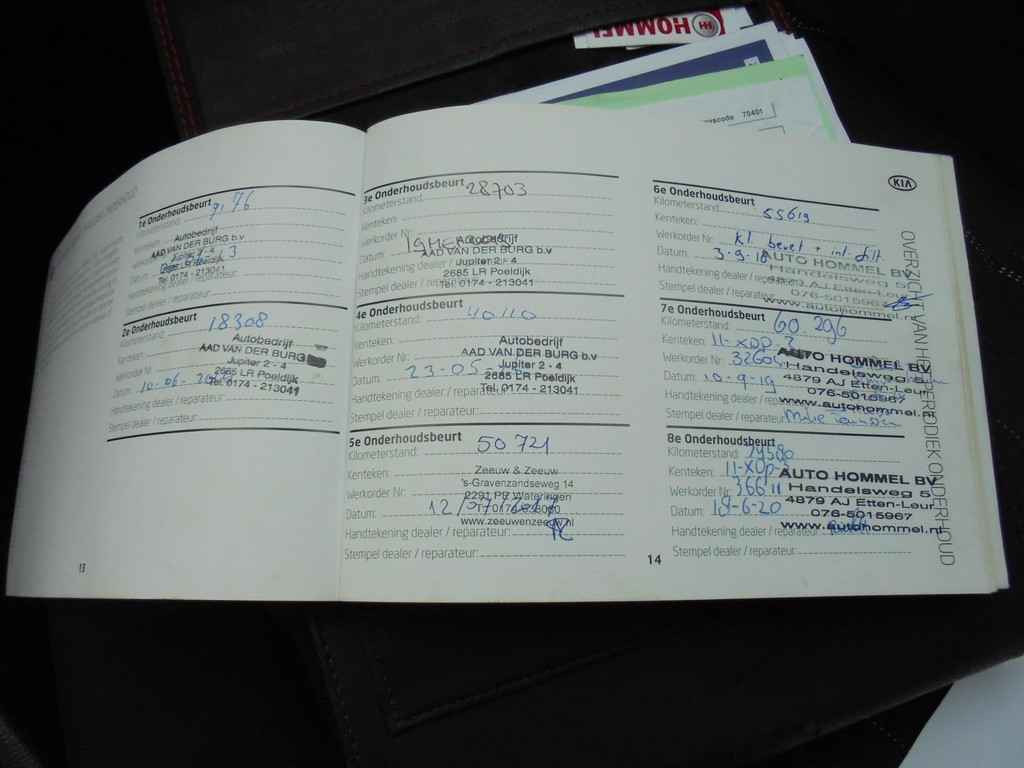 HOMMEL
HH
rscode 70401
KIA
OVERZICHT VAN HET PERIODIEK ONDERHOUD
1e Onderhoudsbeurt
Kilometerstand:
Kenteken:
Autobedrijf
AAD VAN DER BURG b.v
Jupiter 2 - 4
Datum:
Tel. 0174 - 213041
Stempel dealer / reparateur:
2e Onderhoudsbeurt
Kilometerstand: 18308
Kenteken:
Werkorder Nr:
Datum: 10-06-
Autobedrijf
AAD VAN DER BURG
Jupiter 2 - 4
2685 LR Poeldijk
Tel. 0174 - 213041
Handtekening dealer / reparateur:
Stempel dealer / reparateur:
13
3e Onderhoudsbeurt
Kilometerstand: 28703
Kenteken:
Werkorder Nr:
Datum:
Autobedrijf
AAD VAN DER BURG b.v
Jupiter 2 - 4
2685 LR Poeldijk
Tel. 0174 - 213041
Handtekening dealer / reparateur:
Stempel dealer / reparateur:
4e Onderhoudsbeurt
Kilometerstand: 40110
Kenteken:
Werkorder Nr:
Datum: 23-05-
Autobedrijf
AAD VAN DER BURG b.v
Jupiter 2 - 4
2685 LR Poeldijk
Tel. 0174 - 213041
Handtekening dealer / reparateur:
Stempel dealer / reparateur:
5e Onderhoudsbeurt
Kilometerstand: 50721
Kenteken:
Werkorder Nr:
Datum: 12/07/2017
Zeeuw & Zeeuw
's-Gravenzandseweg 14
2291 PR Wateringen
www.zeeuwenzeeuw.nl
Handtekening dealer / reparateur:
Stempel dealer / reparateur:
14
6e Onderhoudsbeurt
Kilometerstand: 55619
Kenteken:
Werkorder Nr: kl beurt + int. filt
Datum: 3-9-18
AUTO HOMMEL BV
Handelsweg 5
4879 AJ Etten-Leur
076-5015967
www.autohommel.nl
Handtekening dealer / reparateur:
Stempel dealer / reparateur:
7e Onderhoudsbeurt
Kilometerstand: 60.296
Kenteken: 11-XDP-7
Werkorder Nr: 32604
Datum: 10-9-19
AUTO HOMMEL BV
Handelsweg 5
4879 AJ Etten-Leur
076-5015967
www.autohommel.nl
Handtekening dealer / reparateur:
Stempel dealer / reparateur:
8e Onderhoudsbeurt
Kilometerstand: 79580
Kenteken: 11-XDP-
Werkorder Nr: 36611
Datum: 18-6-20
AUTO HOMMEL BV
Handelsweg 5
4879 AJ Etten-Leur
076-5015967
www.autohommel.nl
Handtekening dealer / reparateur:
Stempel dealer / reparateur: